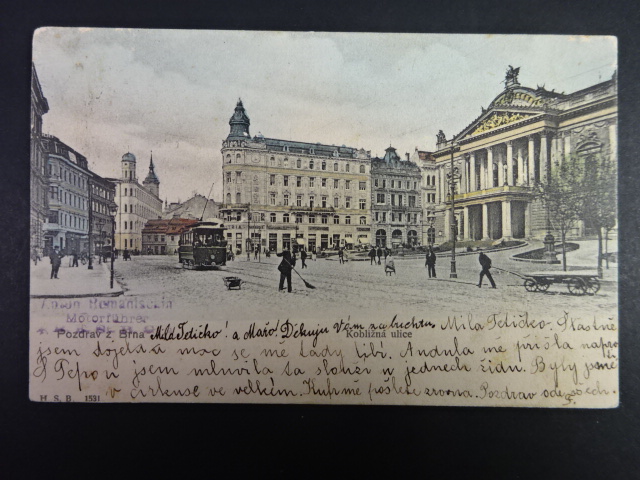 Anton
Motorführer
Pozdrav z Brna
Kobližná ulice
Milá Tetičko! a Mařo. Děkuju Vám za buchtu.
Milá Tetičko. Šťastně
jsem dojela a moc se mě tady líbí. Andula mě přišla naproti
S Pepou jsem mluvila ta slouží u jedněch židů. Byly jsmě
v cirkuse ve velkém. Kufr mě pošlete zrovna. Pozdrav ode všech.
M. S. B. 1531